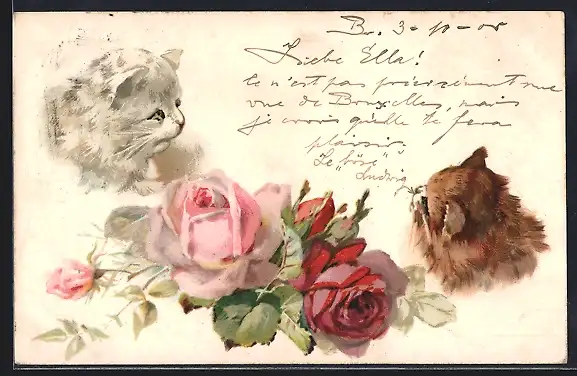 Br. 3-10-05
Liebe Ella!
Ce n'est pas précisément une
vue de Bruxelles, mais
je crois qu'elle te fera
plaisir.
Le „böse"
Ludwig